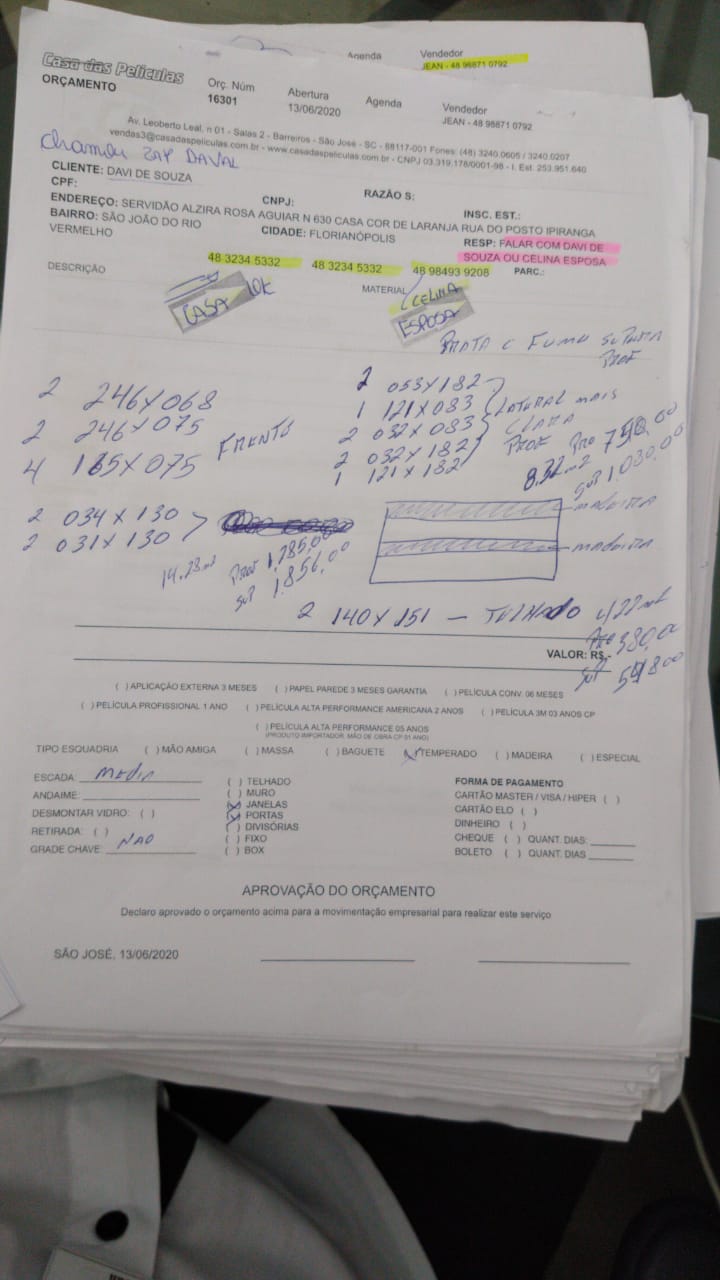 Agenda
Vendedor
JEAN - 48 98871 0792
Casa das Películas
ORÇAMENTO
Orç. Núm
16301
Abertura
13/06/2020
Agenda
Vendedor
JEAN - 48 98871 0792
Av. Leoberto Leal, n 01 - Salas 2 - Barreiros - São José - SC - 88117-001 Fones: (48) 3240.0605 / 3240.0207
vendas3@casadaspeliculas.com.br - www.casadaspeliculas.com.br - CNPJ 03.319.178/0001-98 - I. Est. 253.951.640
Chamou ZAP DAVAL
CLIENTE: DAVI DE SOUZA
CPF:
CNPJ:
RAZÃO S:
INSC. EST.:
ENDEREÇO: SERVIDÃO ALZIRA ROSA AGUIAR N 630 CASA COR DE LARANJA RUA DO POSTO IPIRANGA
BAIRRO: SÃO JOÃO DO RIO VERMELHO
CIDADE: FLORIANÓPOLIS
RESP: FALAR COM DAVI DE
SOUZA OU CELINA ESPOSA
48 3234 5332 48 3234 5332 48 98493 9208
PARC.:
DESCRIÇÃO
MATERIAL
CASA OK
CELINA
ESPOSA
PRATA C FUMO
PROF
2 246X068
2 246X075
4 165X075
FRENTE
2 053X182
1 121X083
2 032X083
2 032X182
1 121X182
LATERAL MAIS
CLARA
PROF
8.32 m2
PRO 750,00
SUP 1.030,00
2 034X130
2 031X130
14.28 m2
PROF 1.285,00
SUP 1.856,00
madeira
madeira
2 140X151 - TELHADO 4/22 m2
PRO 380,00
VALOR: R$,-
SUP 548,00
( ) APLICAÇÃO EXTERNA 3 MESES ( ) PAPEL PAREDE 3 MESES GARANTIA ( ) PELÍCULA CONV. 06 MESES
( ) PELÍCULA PROFISSIONAL 1 ANO ( ) PELÍCULA ALTA PERFORMANCE AMERICANA 2 ANOS ( ) PELÍCULA 3M 03 ANOS CP
( ) PELÍCULA ALTA PERFORMANCE 05 ANOS
(PRODUTO IMPORTADOR. MÃO DE OBRA CP 01 ANO)
TIPO ESQUADRIA ( ) MÃO AMIGA ( ) MASSA ( ) BAGUETE ( ) TEMPERADO ( ) MADEIRA ( ) ESPECIAL
ESCADA: MEDIA
ANDAIME:
DESMONTAR VIDRO: ( )
RETIRADA: ( )
GRADE CHAVE: NAO
( ) TELHADO
( ) MURO
(X) JANELAS
(X) PORTAS
( ) DIVISÓRIAS
( ) FIXO
( ) BOX
FORMA DE PAGAMENTO
CARTÃO MASTER / VISA / HIPER ( )
CARTÃO ELO ( )
DINHEIRO ( )
CHEQUE ( ) QUANT. DIAS:
BOLETO ( ) QUANT. DIAS
APROVAÇÃO DO ORÇAMENTO
Declaro aprovado o orçamento acima para a movimentação empresarial para realizar este serviço
SÃO JOSÉ, 13/06/2020